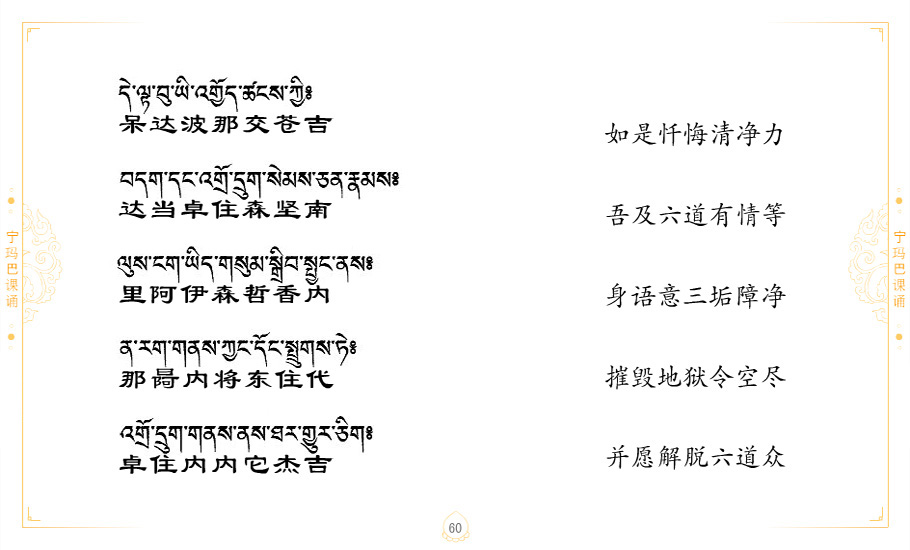 དེ་ལྟ་བུ་ཡི་འགྱོད་ཚངས་ཀྱི༔
呆达波那交苍吉
如是忏悔清净力
བདག་དང་འགྲོ་དྲུག་སེམས་ཅན་རྣམས༔
达当卓住森坚南
吾及六道有情等
ལུས་ངག་ཡིད་གསུམ་སྒྲིབ་སྦྱང་ནས༔
里阿伊森哲香内
身语意三垢障净
ན་རག་གནས་ཀྱང་དོང་སྤྲུགས་ཏེ༔
那㖀内将东住代
摧毁地狱令空尽
འགྲོ་དྲུག་གནས་ནས་ཐར་གྱུར་ཅིག༔
卓住内内它杰吉
并愿解脱六道众
宁玛巴课诵
宁玛巴课诵
60